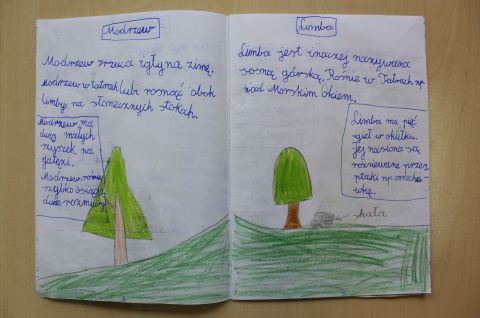 Modrzew
Modrzew zrzuca igły na zimę.
Modrzew w tatrach lubi rosnąć obok
limby na słonecznych stokach.
Modrzew ma
dużo małych
szyszek na
gałęzi.
Modrzew rośnie
szybko osiąga
duże rozmiary
Limba
Limba jest inaczej nazywana
sosną górską. Rośnie w Tatrach np.
nad Morskim Okiem.
Limba ma pięć
igieł w okółku.
Jej nasiona są
rozsiewane przez
ptaki np. orzecho-
wkę.
skała